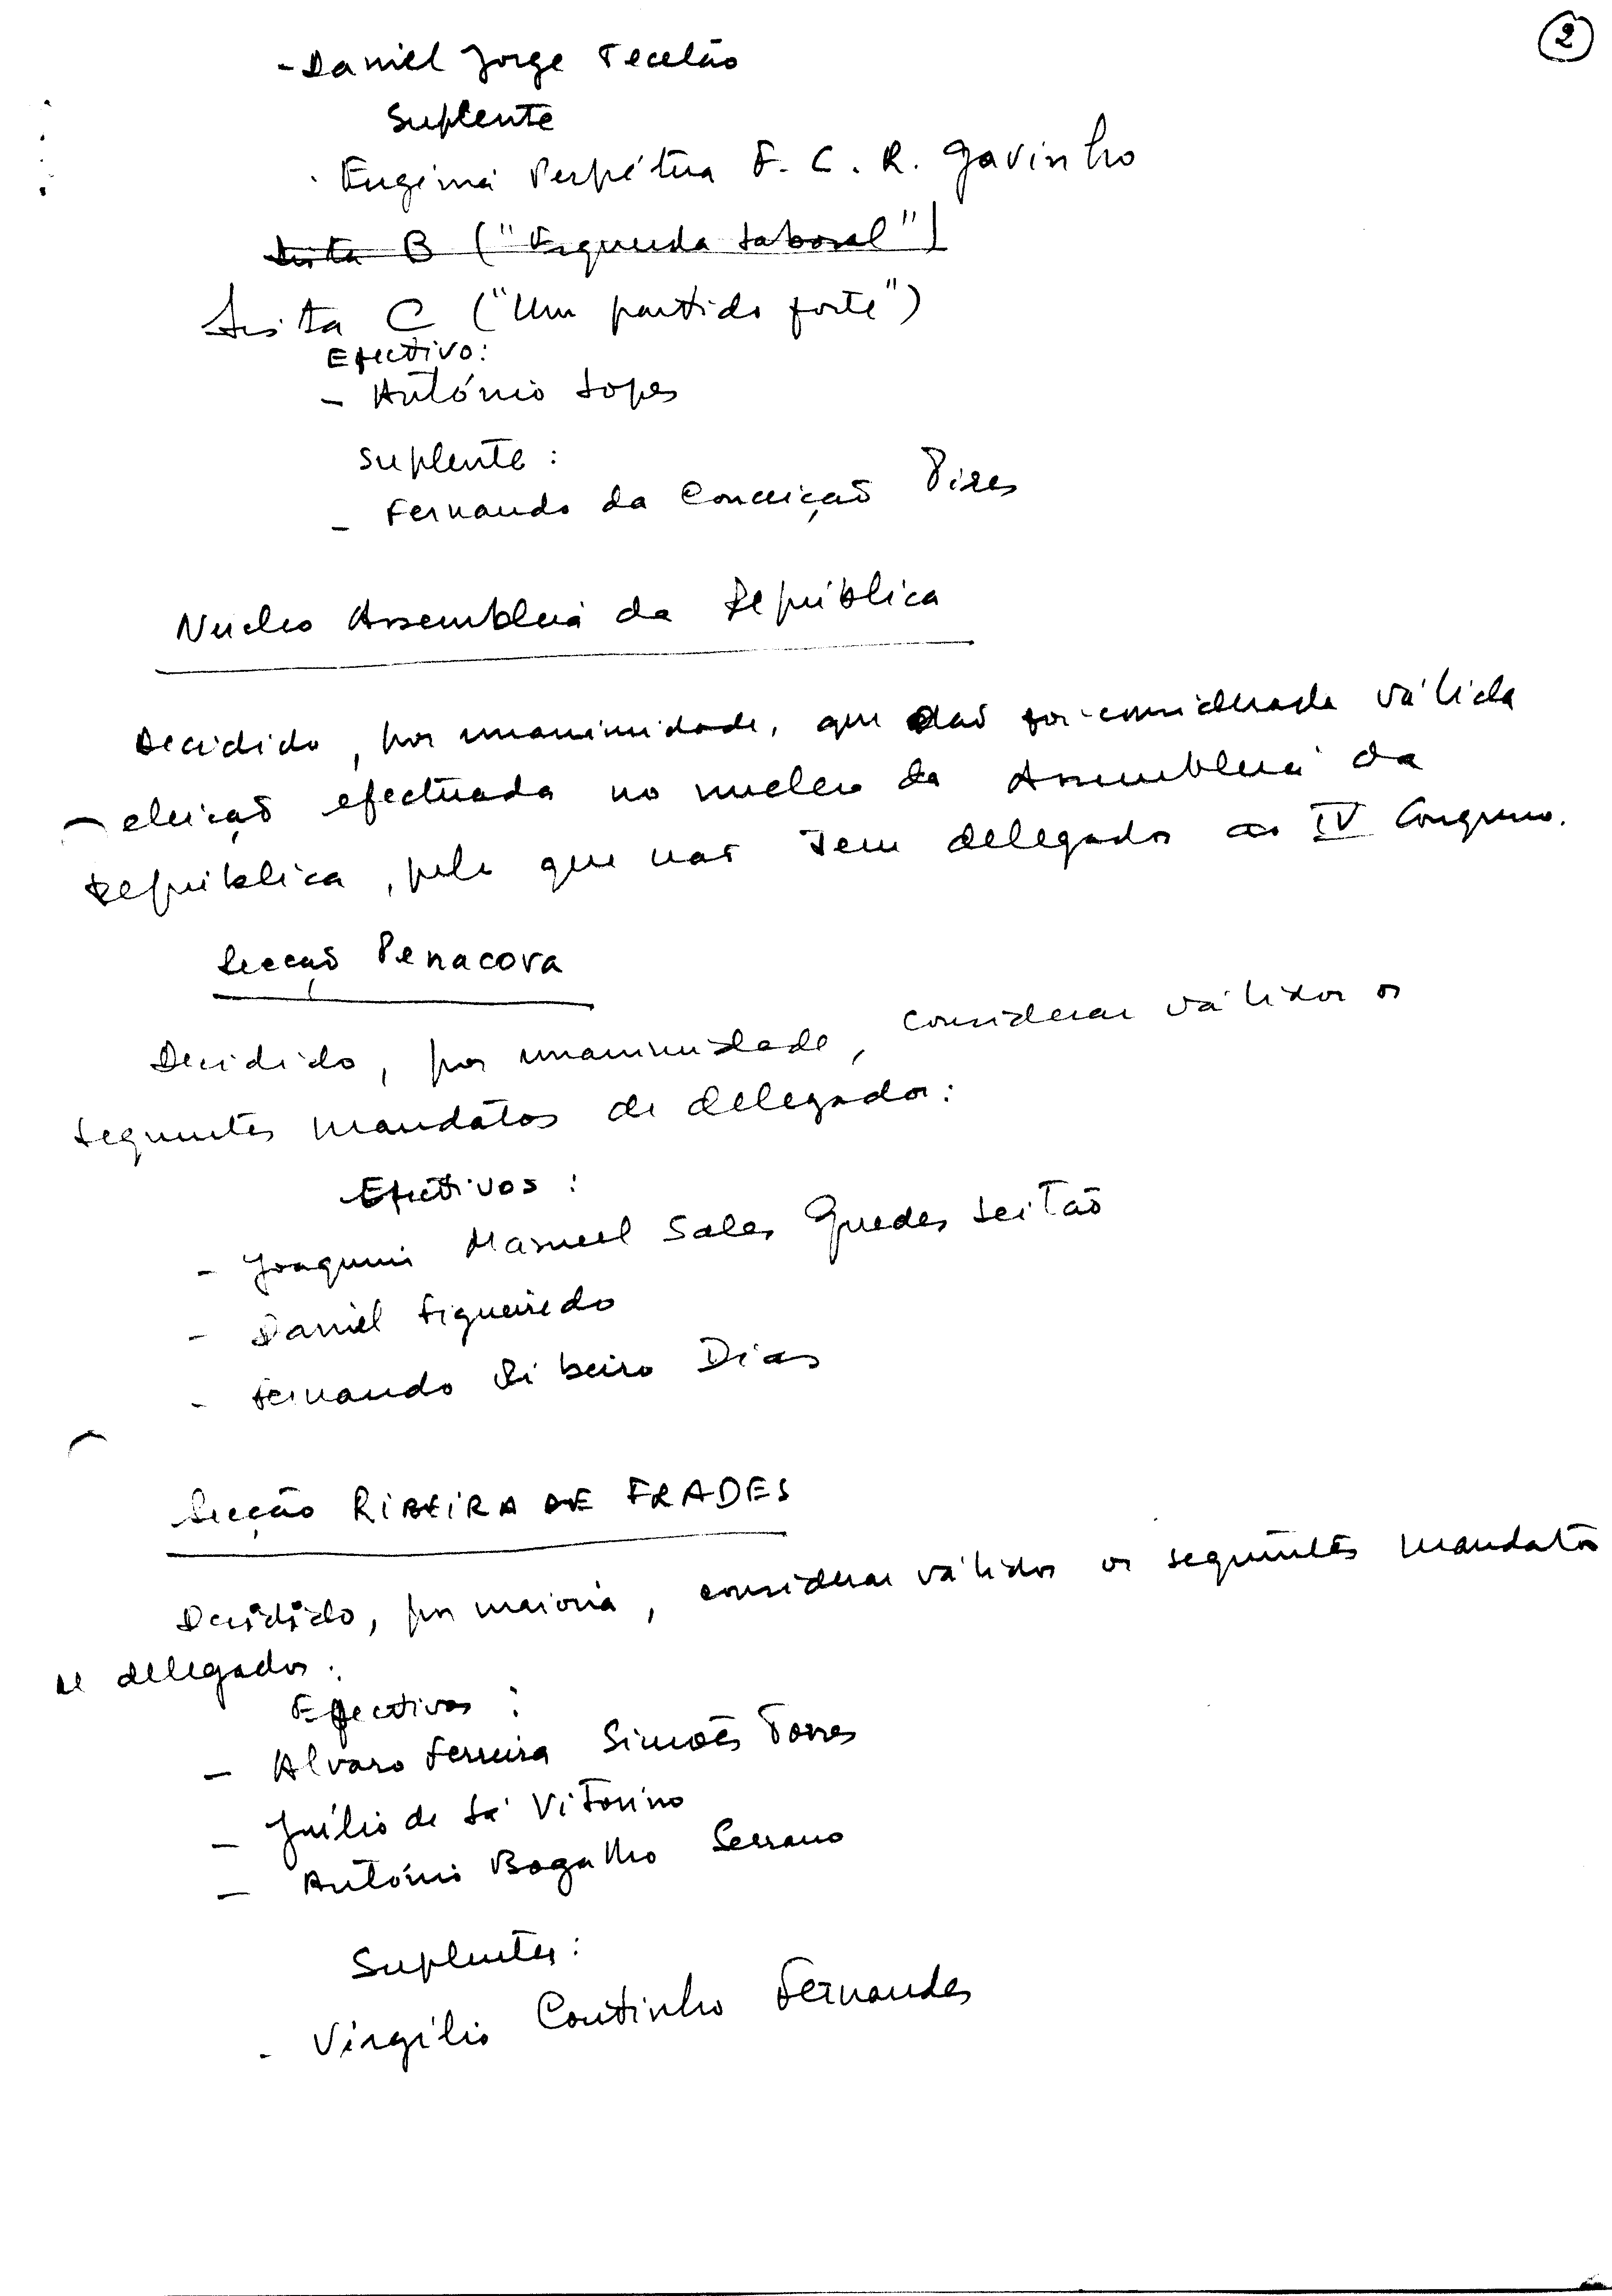 2
- Daniel Jorge Tecelão
Suplente
· Eugénia Perpétua F. C. R. Gavinho
Lista B ("Esquerda Laboral")
Lista C ("Um partido forte")
Efectivo:
- António Lopes
Suplente:
- Fernando da Conceição Pires
Nucleo Assembleia da República
Decidido, por unanimidade, que não foi considerada válida
a eleição efectuada no nucleo da Assembleia da
República, pelo que não tem delegados ao IV Congresso.
Secção Penacova
Decidido, por unanimidade, considerar válidos os
seguintes mandatos de delegados:
Efectivos:
- Joaquim Manuel Sales Guedes Leitão
- Daniel Figueiredo
- Fernando Ribeiro Dias
Secção RIBEIRA DE FRADES
Decidido, por maioria, considerar válidos os seguintes mandatos
de delegados:
Efectivos:
- Alvaro Ferreira Simões Torres
- Júlio de Sá Vitorino
- António Bogalho Serrano
Suplentes:
- Virgílio Coutinho Fernandes